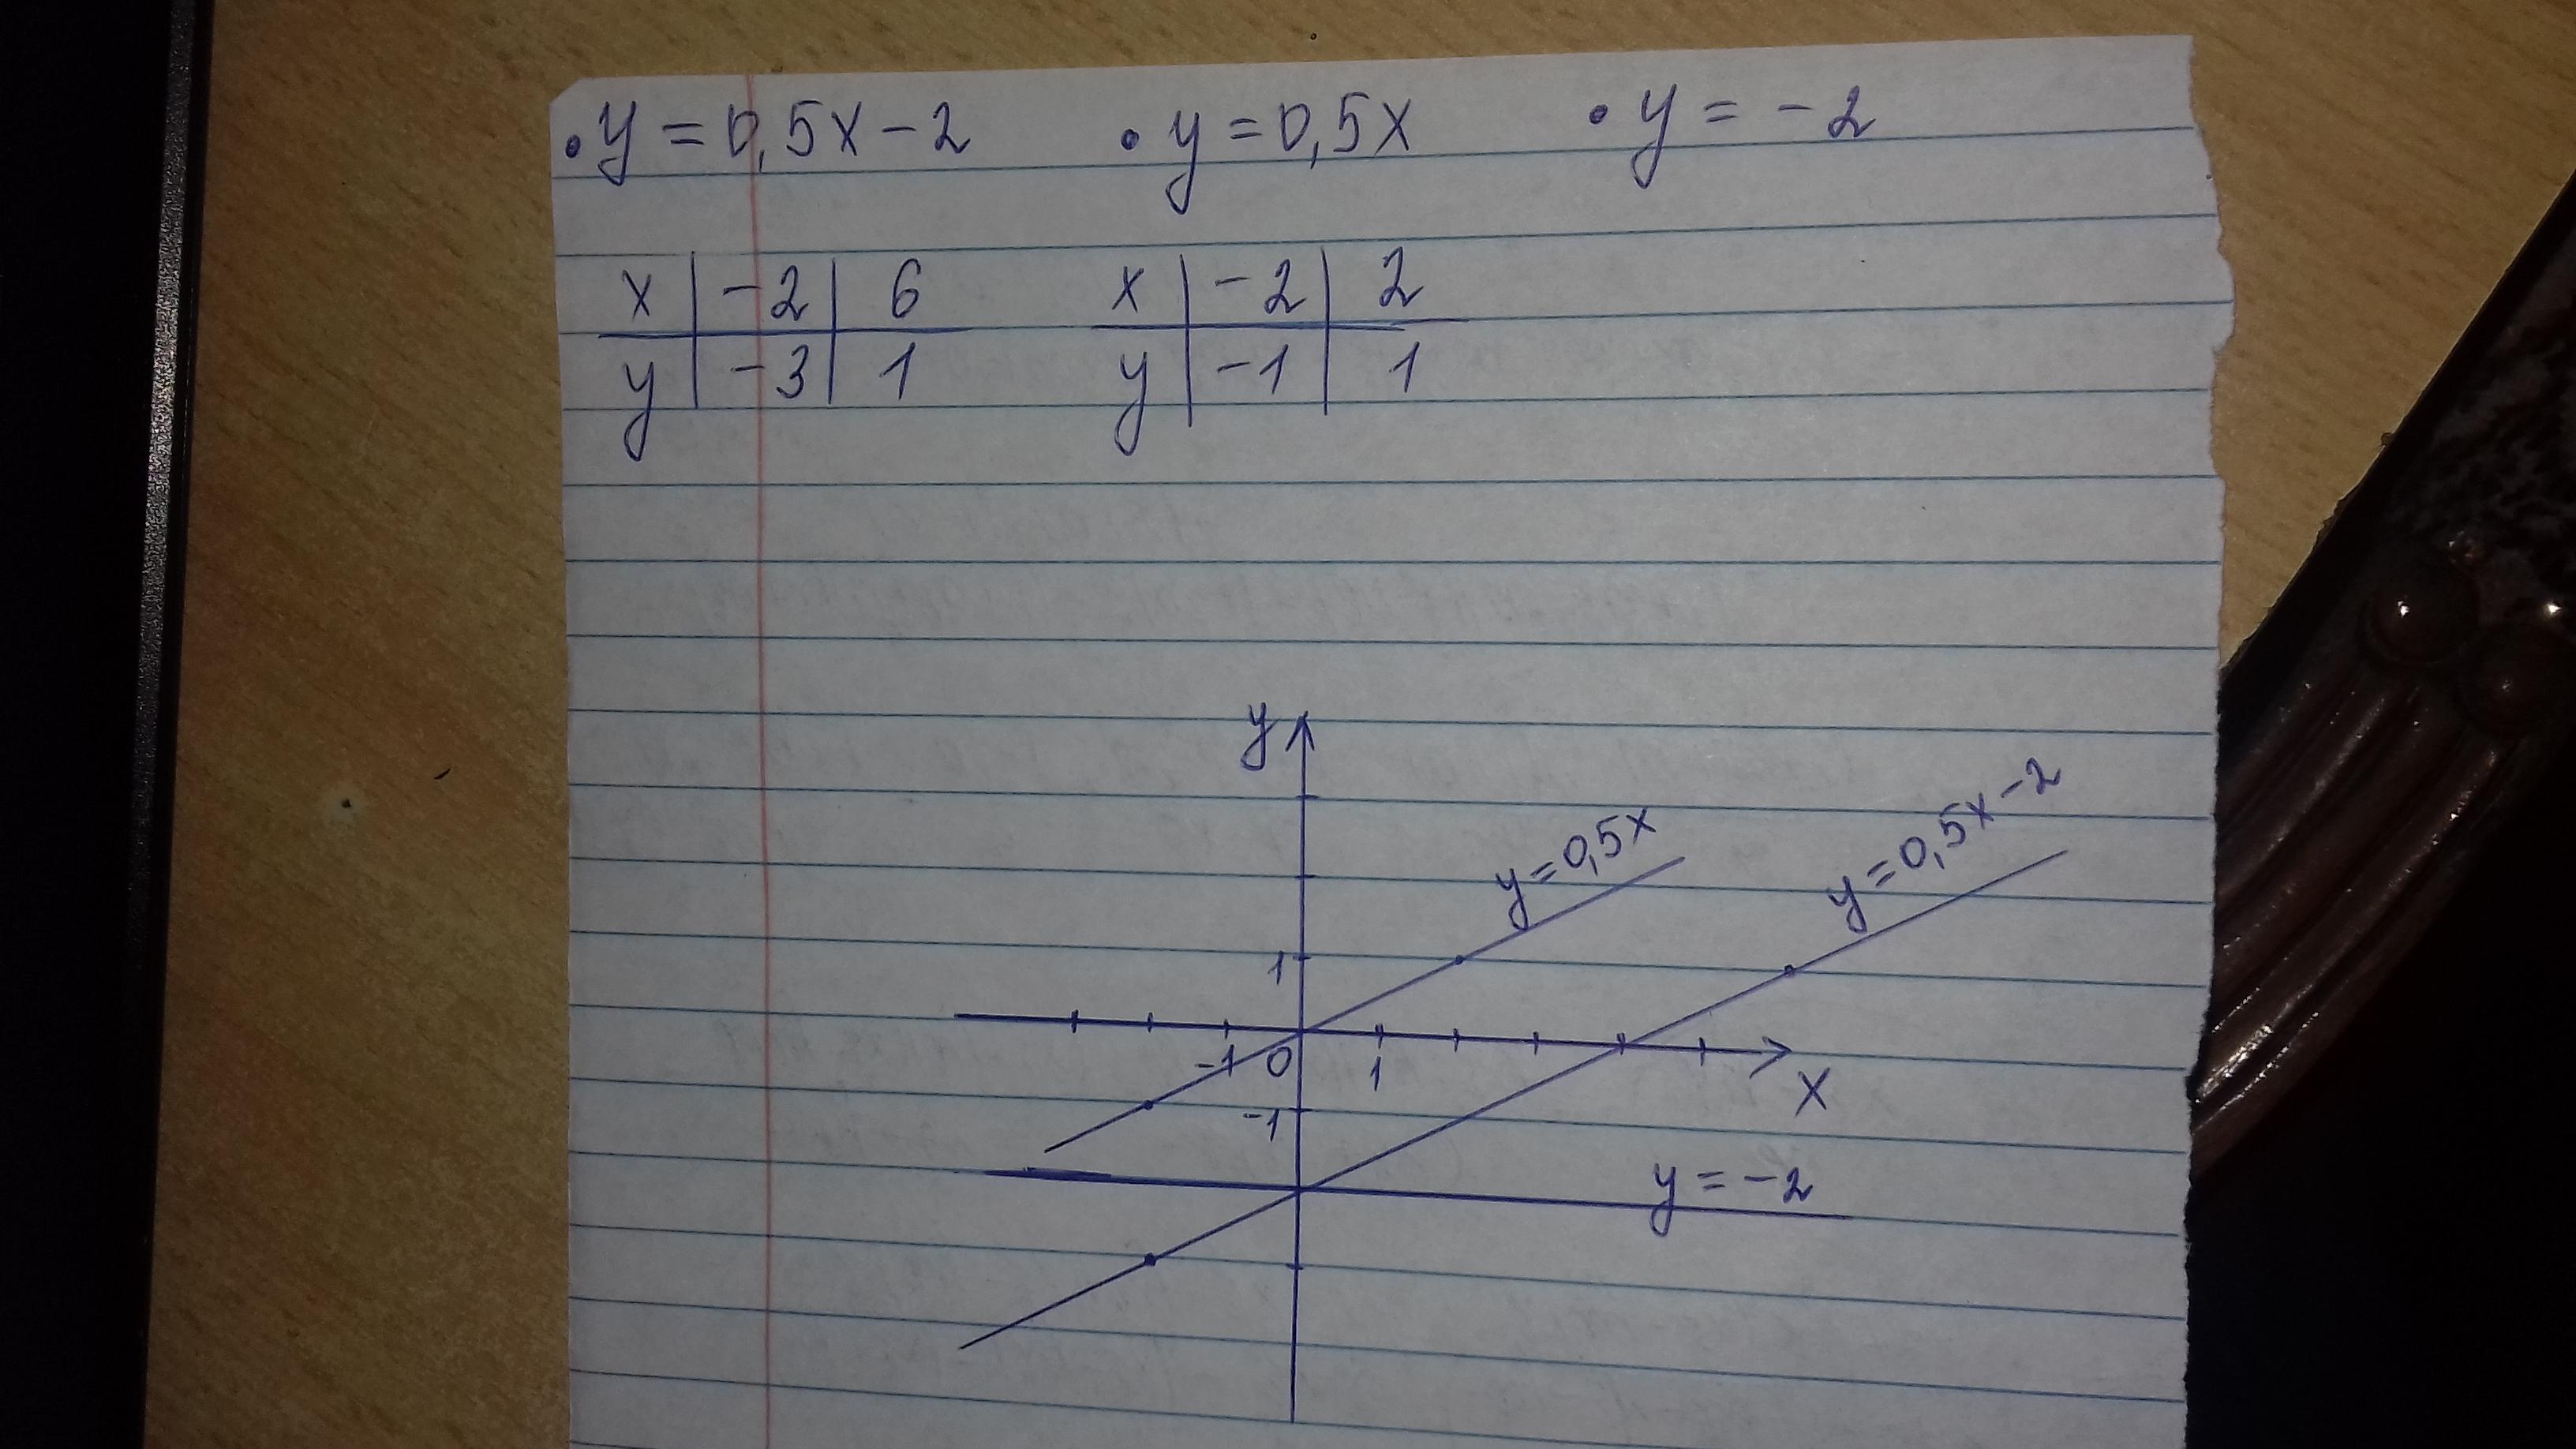 • y = 0,5x - 2 • y = 0,5x • y = -2
x | -2 | 6 x | -2 | 2
y | -3 | 1 y | -1 | 1
y
y = 0,5x y = 0,5x - 2
1
-1 0 1 x
-1
y = -2